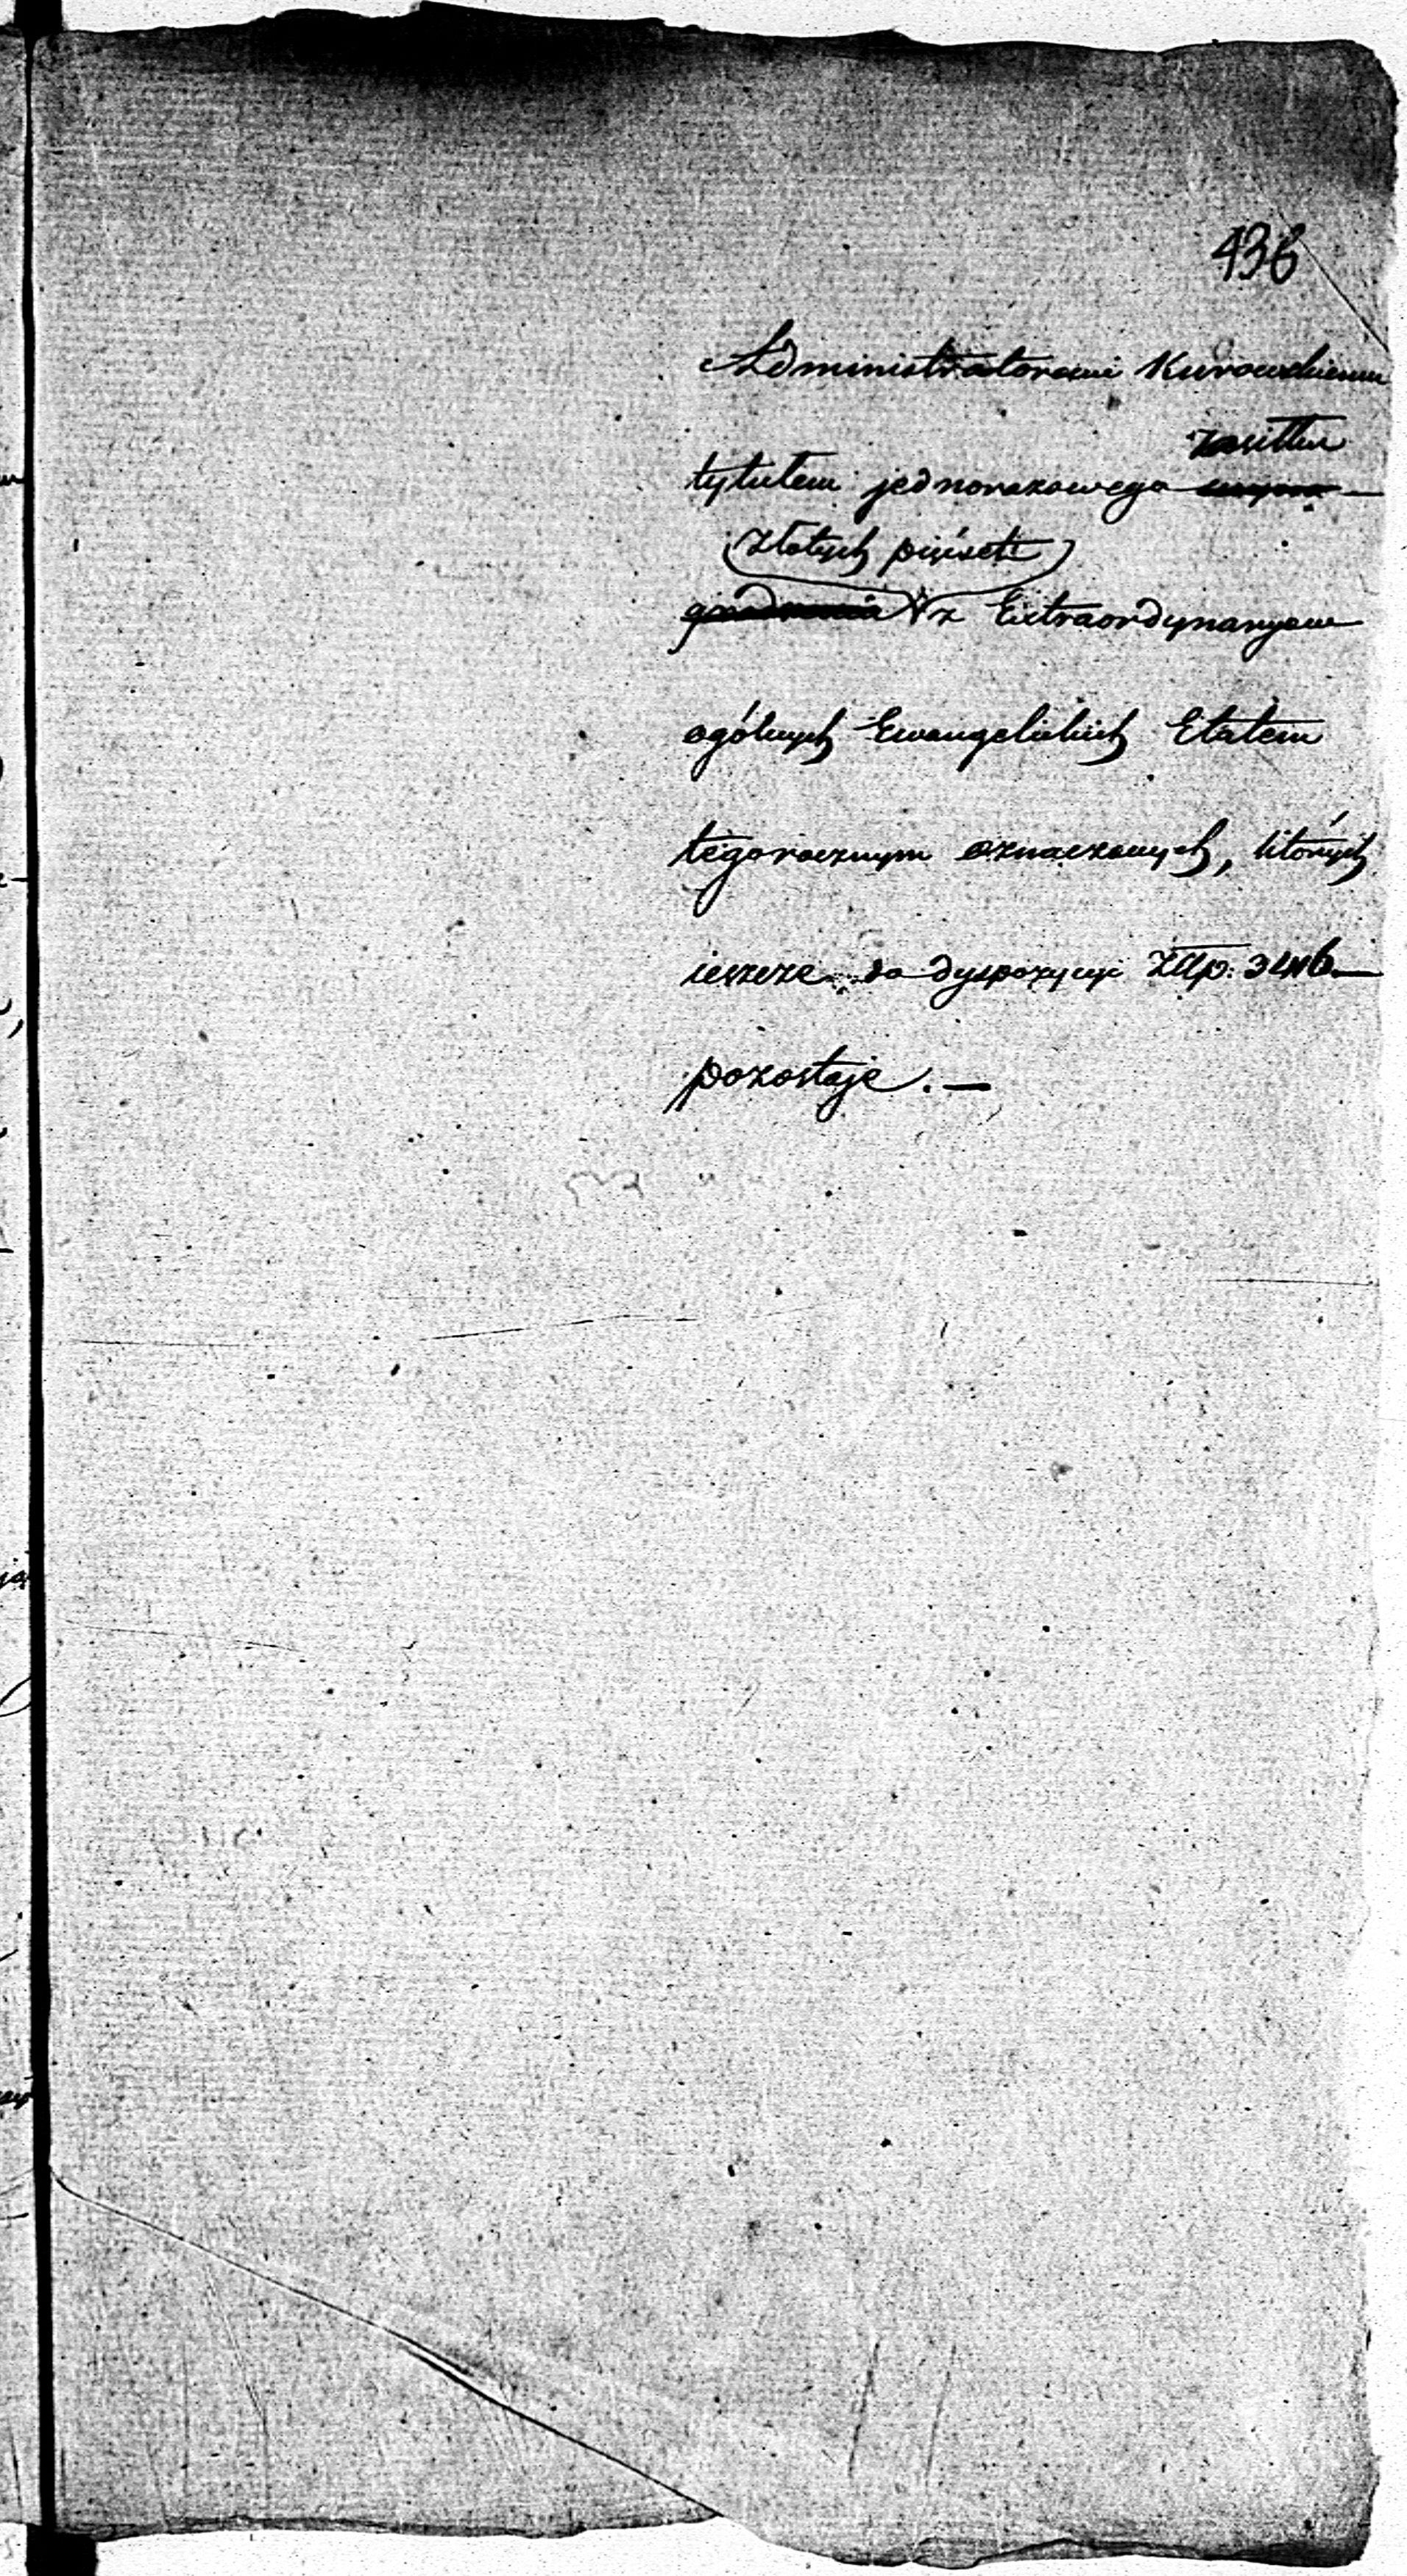 436
Administratorowi Kurowskiemu
zasiłku
tytułem jednorazowego wyna-
złotych pięćset
grodzenia z Extraordynaryów
ogólnych Ewangelickich Etatem
tegorocznym oznaczonych, których
ieszcze do dyspozycyi Złp:
pozostaje. —